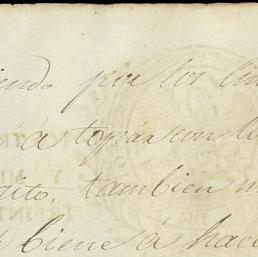 iendo por los lin
a topar con la
aito, tambien m
biene á hace